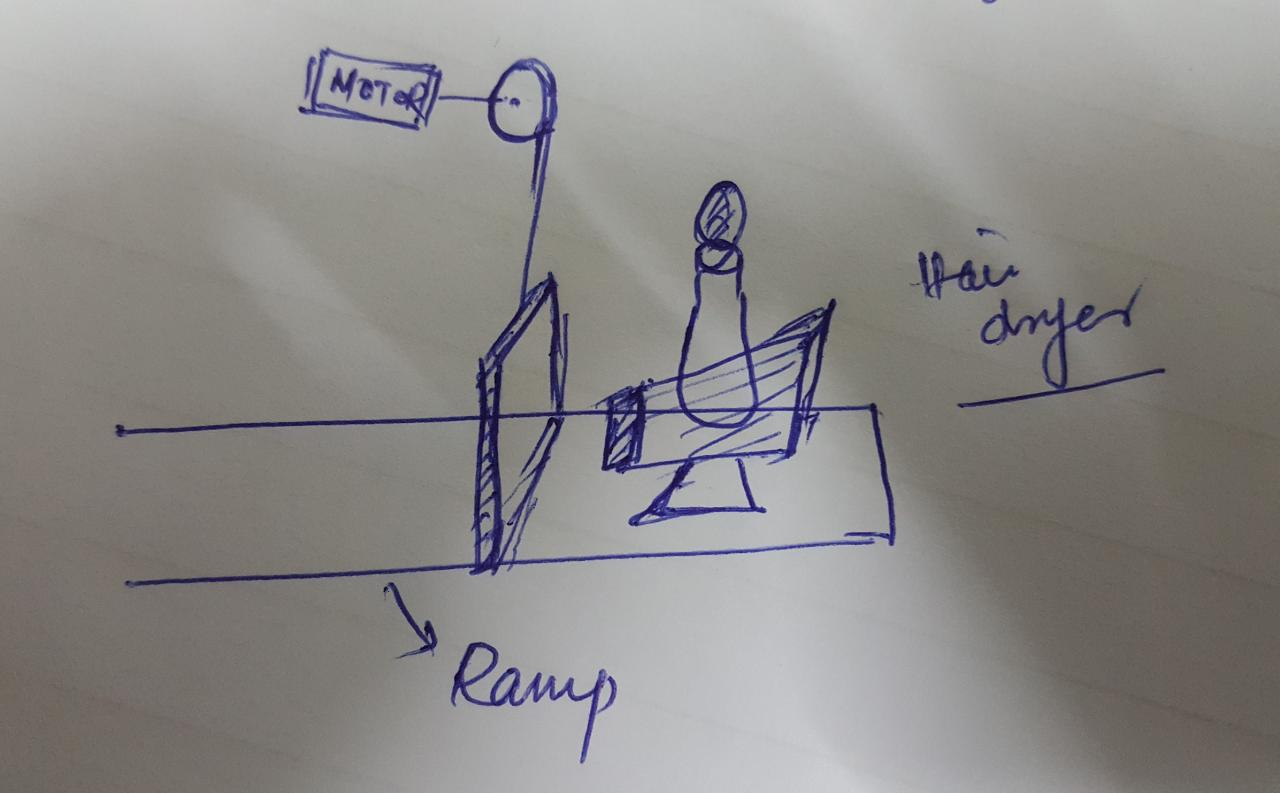 MOTOR
Hair
dryer
Ramp